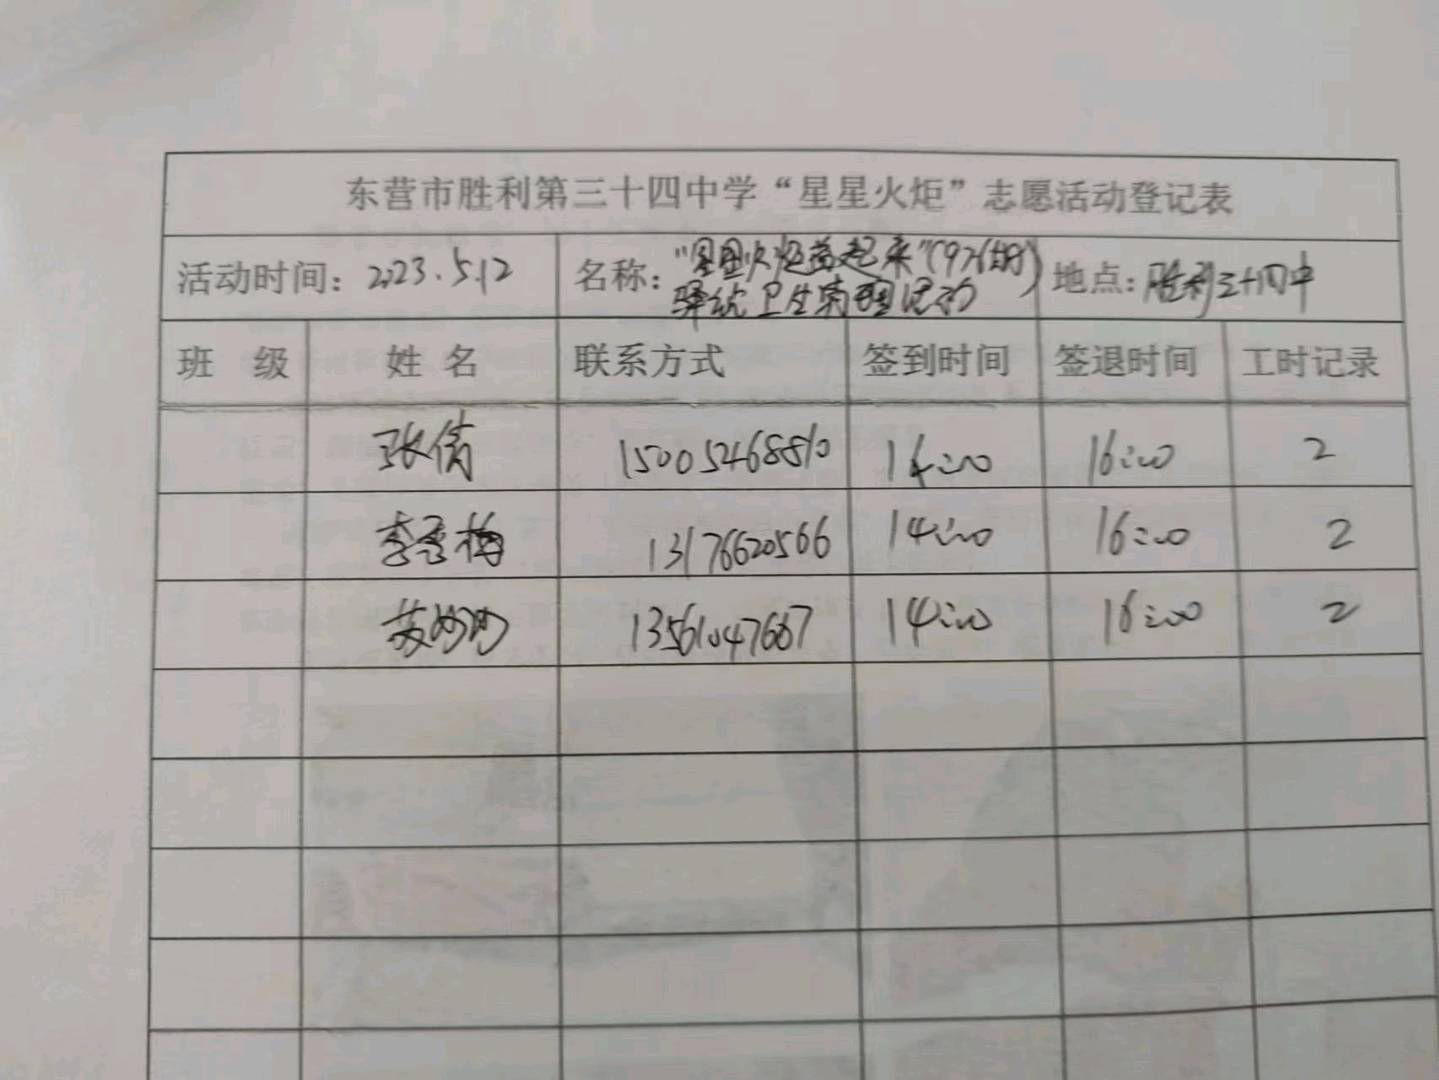 东营市胜利第三十四中学“星星火炬”志愿活动登记表
活动时间：2023.5.12 名称：“星星火炬益起来”（926期） 地点：胜利三十四中
驿站卫生清理活动
班 级 姓 名 联系方式 签到时间 签退时间 工时记录
张倩 15005468810 14:00 16:00 2
李秀梅 13176620566 14:00 16:00 2
13561047667 14:00 16:00 2